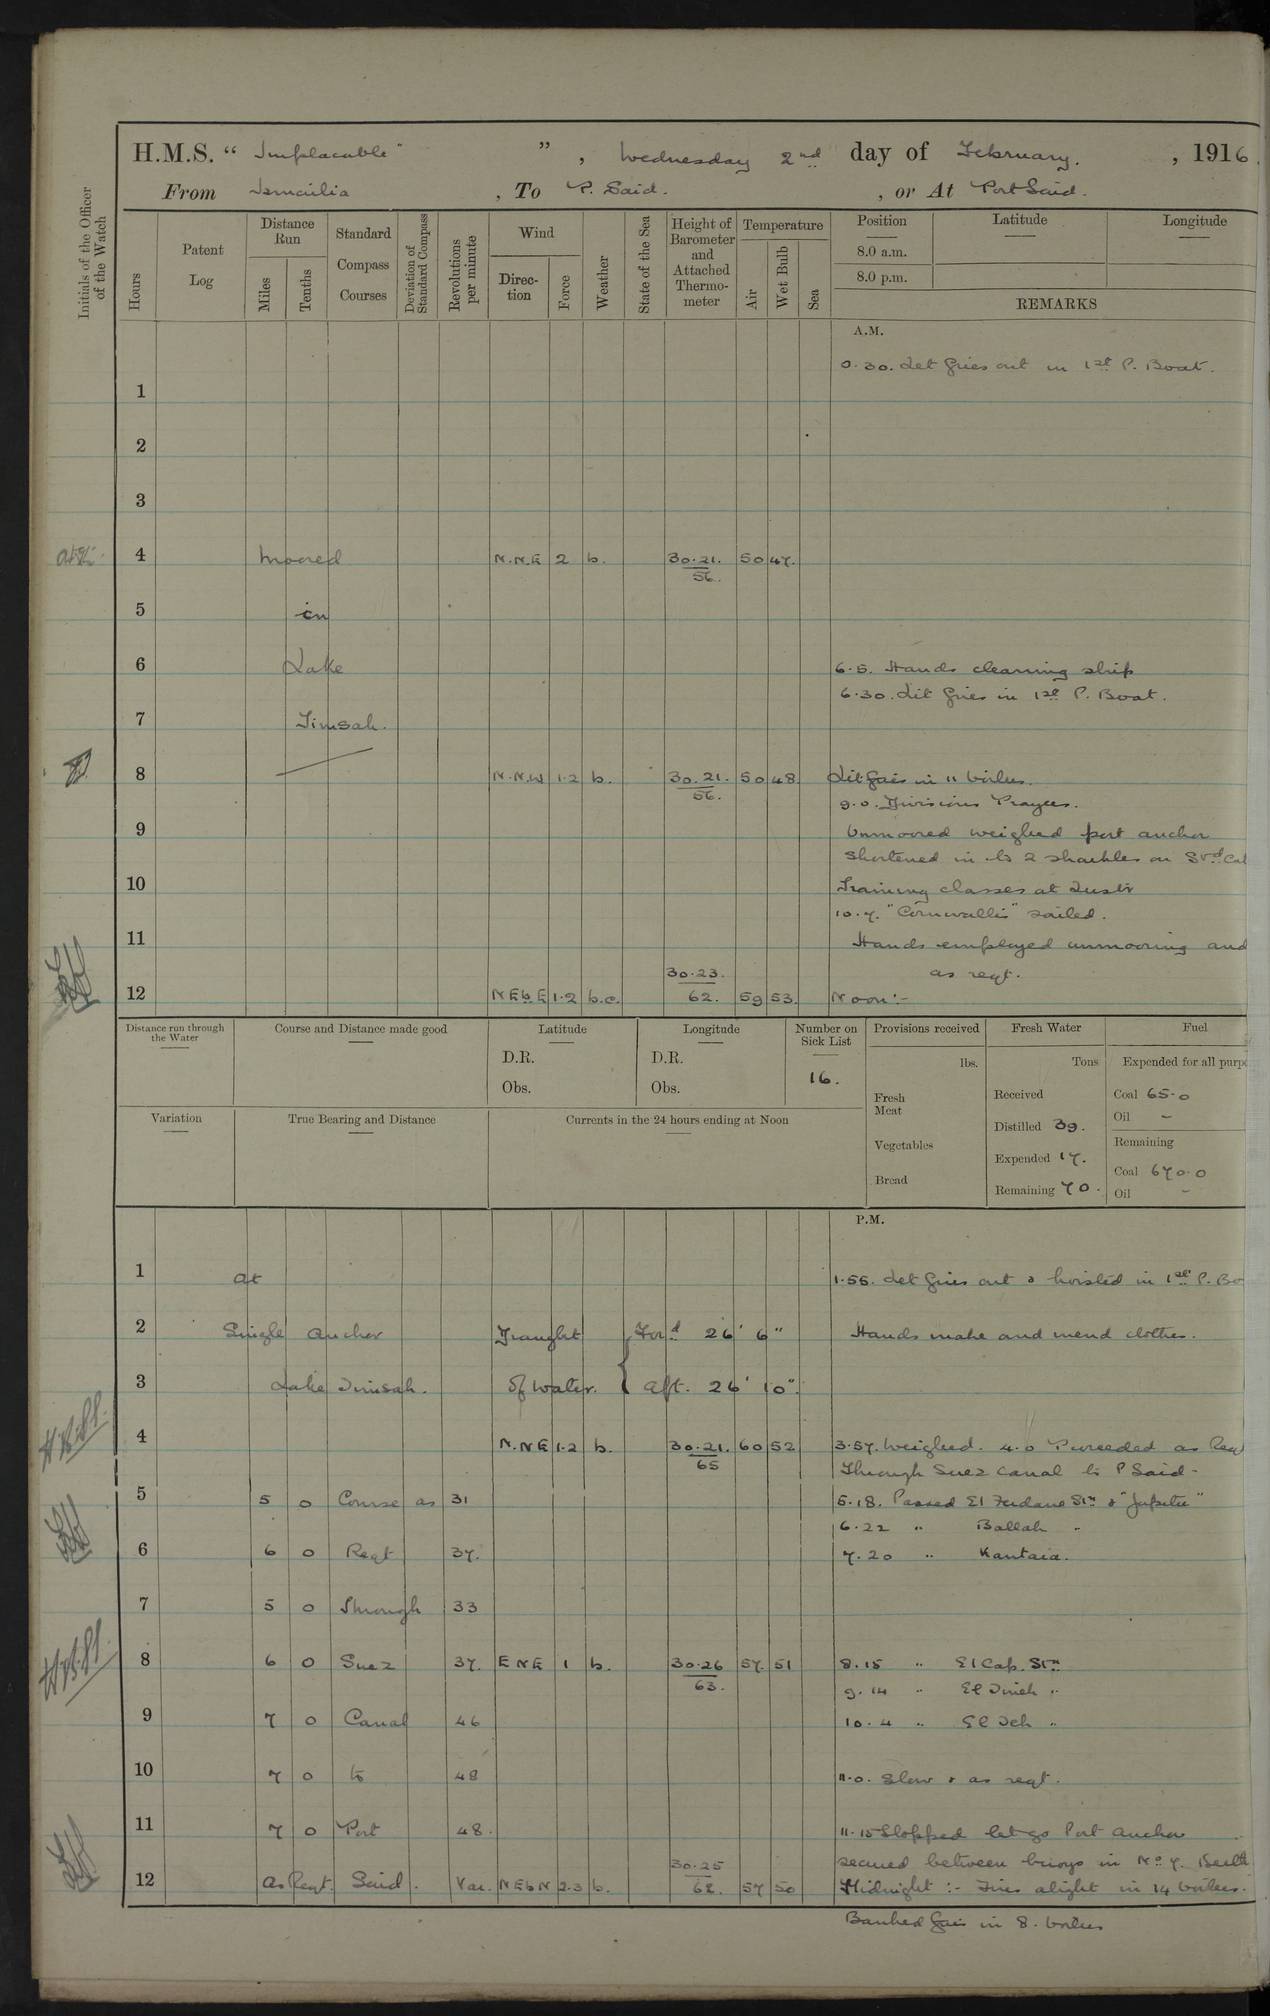 H.M.S. “ Implacable " ” , Wednesday 2nd day of February. , 1916.
From Ismailia , To P. Said. , or At Port Said.
Initials of the Officer of the Watch
Hours
Patent Log
Distance Run
Miles
Tenths
Standard Compass Courses
Deviation of Standard Compass
Revolutions per minute
Wind
Direc-tion
Force
Weather
State of the Sea
Height of Barometer and Attached Thermo-meter
Temperature
Air
Wet Bulb
Sea
Position
Latitude
Longitude
8.0 a.m.
8.0 p.m.
REMARKS
A.M.
0.30. Let fires out in 1st P. Boat.
1
2
3
4 Moored N.N.E 2 b. 30.21. 50 47.
56.
5 in
6 Lake 6.5. Hands cleaning ship
6.30. Lit fires in 1st P. Boat.
7 Timsah.
8 N.N.W 1.2 b. 30.21. 50 48. Lit fires in 11 boilers.
56.
9.0. Divisions Prayers.
9 Unmoored weighed port anchor
shortened in to 2 shackles on Stbd Cab
10 Training classes at Instr
10.7. "Cornwallis" sailed.
11 Hands employed unmooring and
as reqt.
30.23.
12 NEbE 1.2 b.c. 62. 59 53. Noon:-
Distance run through the Water
Course and Distance made good
Latitude
D.R.
Obs.
Longitude
D.R.
Obs.
Number on Sick List
16.
Provisions received
lbs.
Fresh Meat
Vegetables
Bread
Fresh Water
Tons
Received
Distilled 39.
Expended 17.
Remaining 70.
Fuel
Expended for all purpo
Coal 65.0
Oil –
Remaining
Coal 670.0
Oil –
Variation
True Bearing and Distance
Currents in the 24 hours ending at Noon
P.M.
1 At 1.55. Let fires out & hoisted in 1st P. Bo
2 Single Anchor Draught Ford 26' 6" Hands make and mend clothes.
3 Lake Timsah. of water. Aft. 26' 10".
4 N.NE 1.2 b. 30.21. 60 52 3.57. Weighed. 4.0 Proceeded as Req
65
Through Suez Canal to P Said-
5 5 0 Course as 31 5.18. Passed El Ferdane Stn & "Jupiter"
6.22 " Ballah "
6 6 0 Reqt 37. 7.20 " Kantara.
7 5 0 through 33
8 6 0 Suez 37. E N E 1 b. 30.26 57. 51 8.15 " El Cap. Stn
63.
9.14 " El Tineh "
9 7 0 Canal 46 10.4 " El Teh "
10 7 0 to 48 11.0. Slow & as reqt.
11 7 0 Port 48. 11.15 Stopped let go Port anchor
30.25 secured between buoys in No 7. Berth
12 as Reqt. Said. Var. NEbN 2.3 b. 62. 57 50 Midnight:- Fires alight in 14 boilers.
Banked fires in 8. boilers